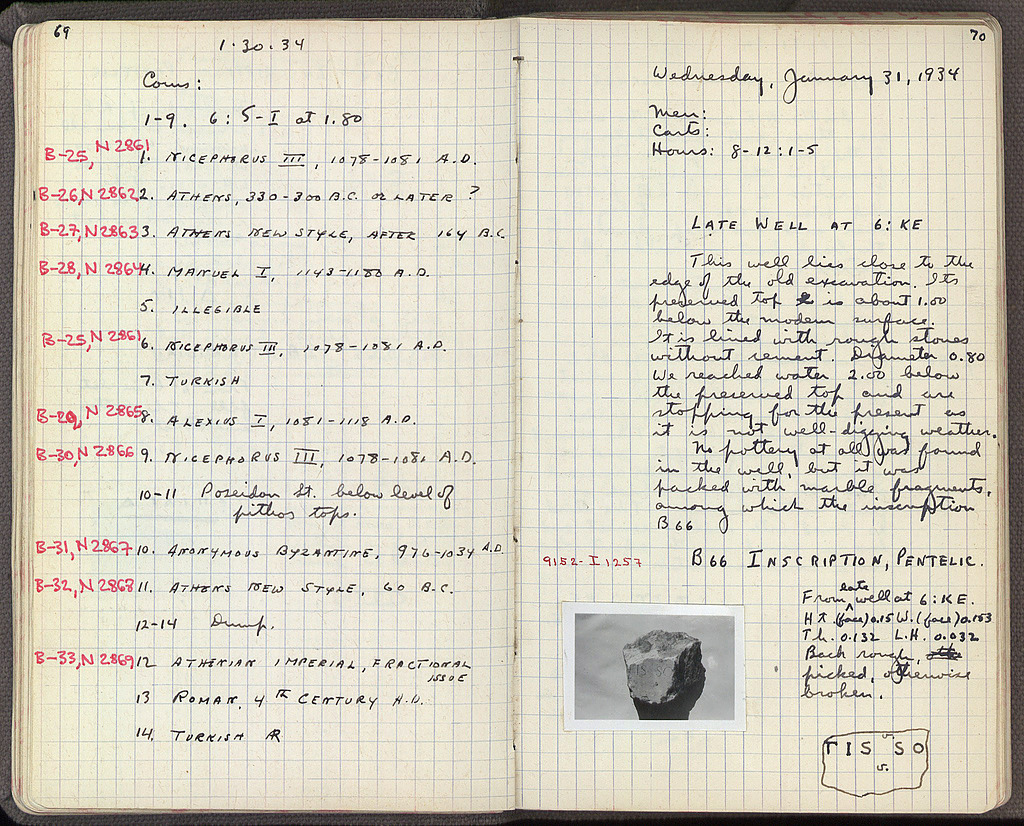 69
1·30·34
Coins:
1-9. 6: 5-I at 1.80
B-25, N 2861 1. NICEPHORUS III, 1078-1081 A.D.
B-26, N 2862 2. ATHENS, 330-300 B.C. OR LATER ?
B-27, N 2863 3. ATHENS NEW STYLE, AFTER 164 B.C.
B-28, N 2864 4. MANUEL I, 1143-1180 A.D.
5. ILLEGIBLE
B-25, N 2861 6. NICEPHORUS III, 1078-1081 A.D.
7. TURKISH
B-29, N 2865 8. ALEXIUS I, 1081-1118 A.D.
B-30, N 2866 9. NICEPHORUS III, 1078-1081 A.D.
10-11 Poseidon St. below level of
pithos tops.
B-31, N 2867 10. ANONYMOUS BYZANTINE, 976-1034 A.D.
B-32, N 2868 11. ATHENS NEW STYLE, 60 B.C.
12-14 Dump.
B-33, N 2869 12 ATHENIAN IMPERIAL, FRACTIONAL
ISSUE
13 ROMAN, 4TH CENTURY A.D.
14. TURKISH AR
70
Wednesday, January 31, 1934
Men:
Carts:
Hours: 8-12 : 1-5
LATE WELL AT 6: KE
This well lies close to the
edge of the old excavation. Its
preserved top is about 1.00
below the modern surface.
It is lined with rough stones
without cement. Diameter 0.80
We reached water 2.00 below
the preserved top and are
stopping for the present as
it is not well-digging weather.
No pottery at all was found
in the well, but it was
packed with marble fragments,
among which the inscription
B 66
9152- I 1257
B 66 INSCRIPTION, PENTELIC.
From late well at 6: KE.
Ht. (face) 0.15 W. (face) 0.153
Th. 0.132 L.H. 0.032
Back rough,
picked, otherwise
broken.
v.
Γ I S S O
v.